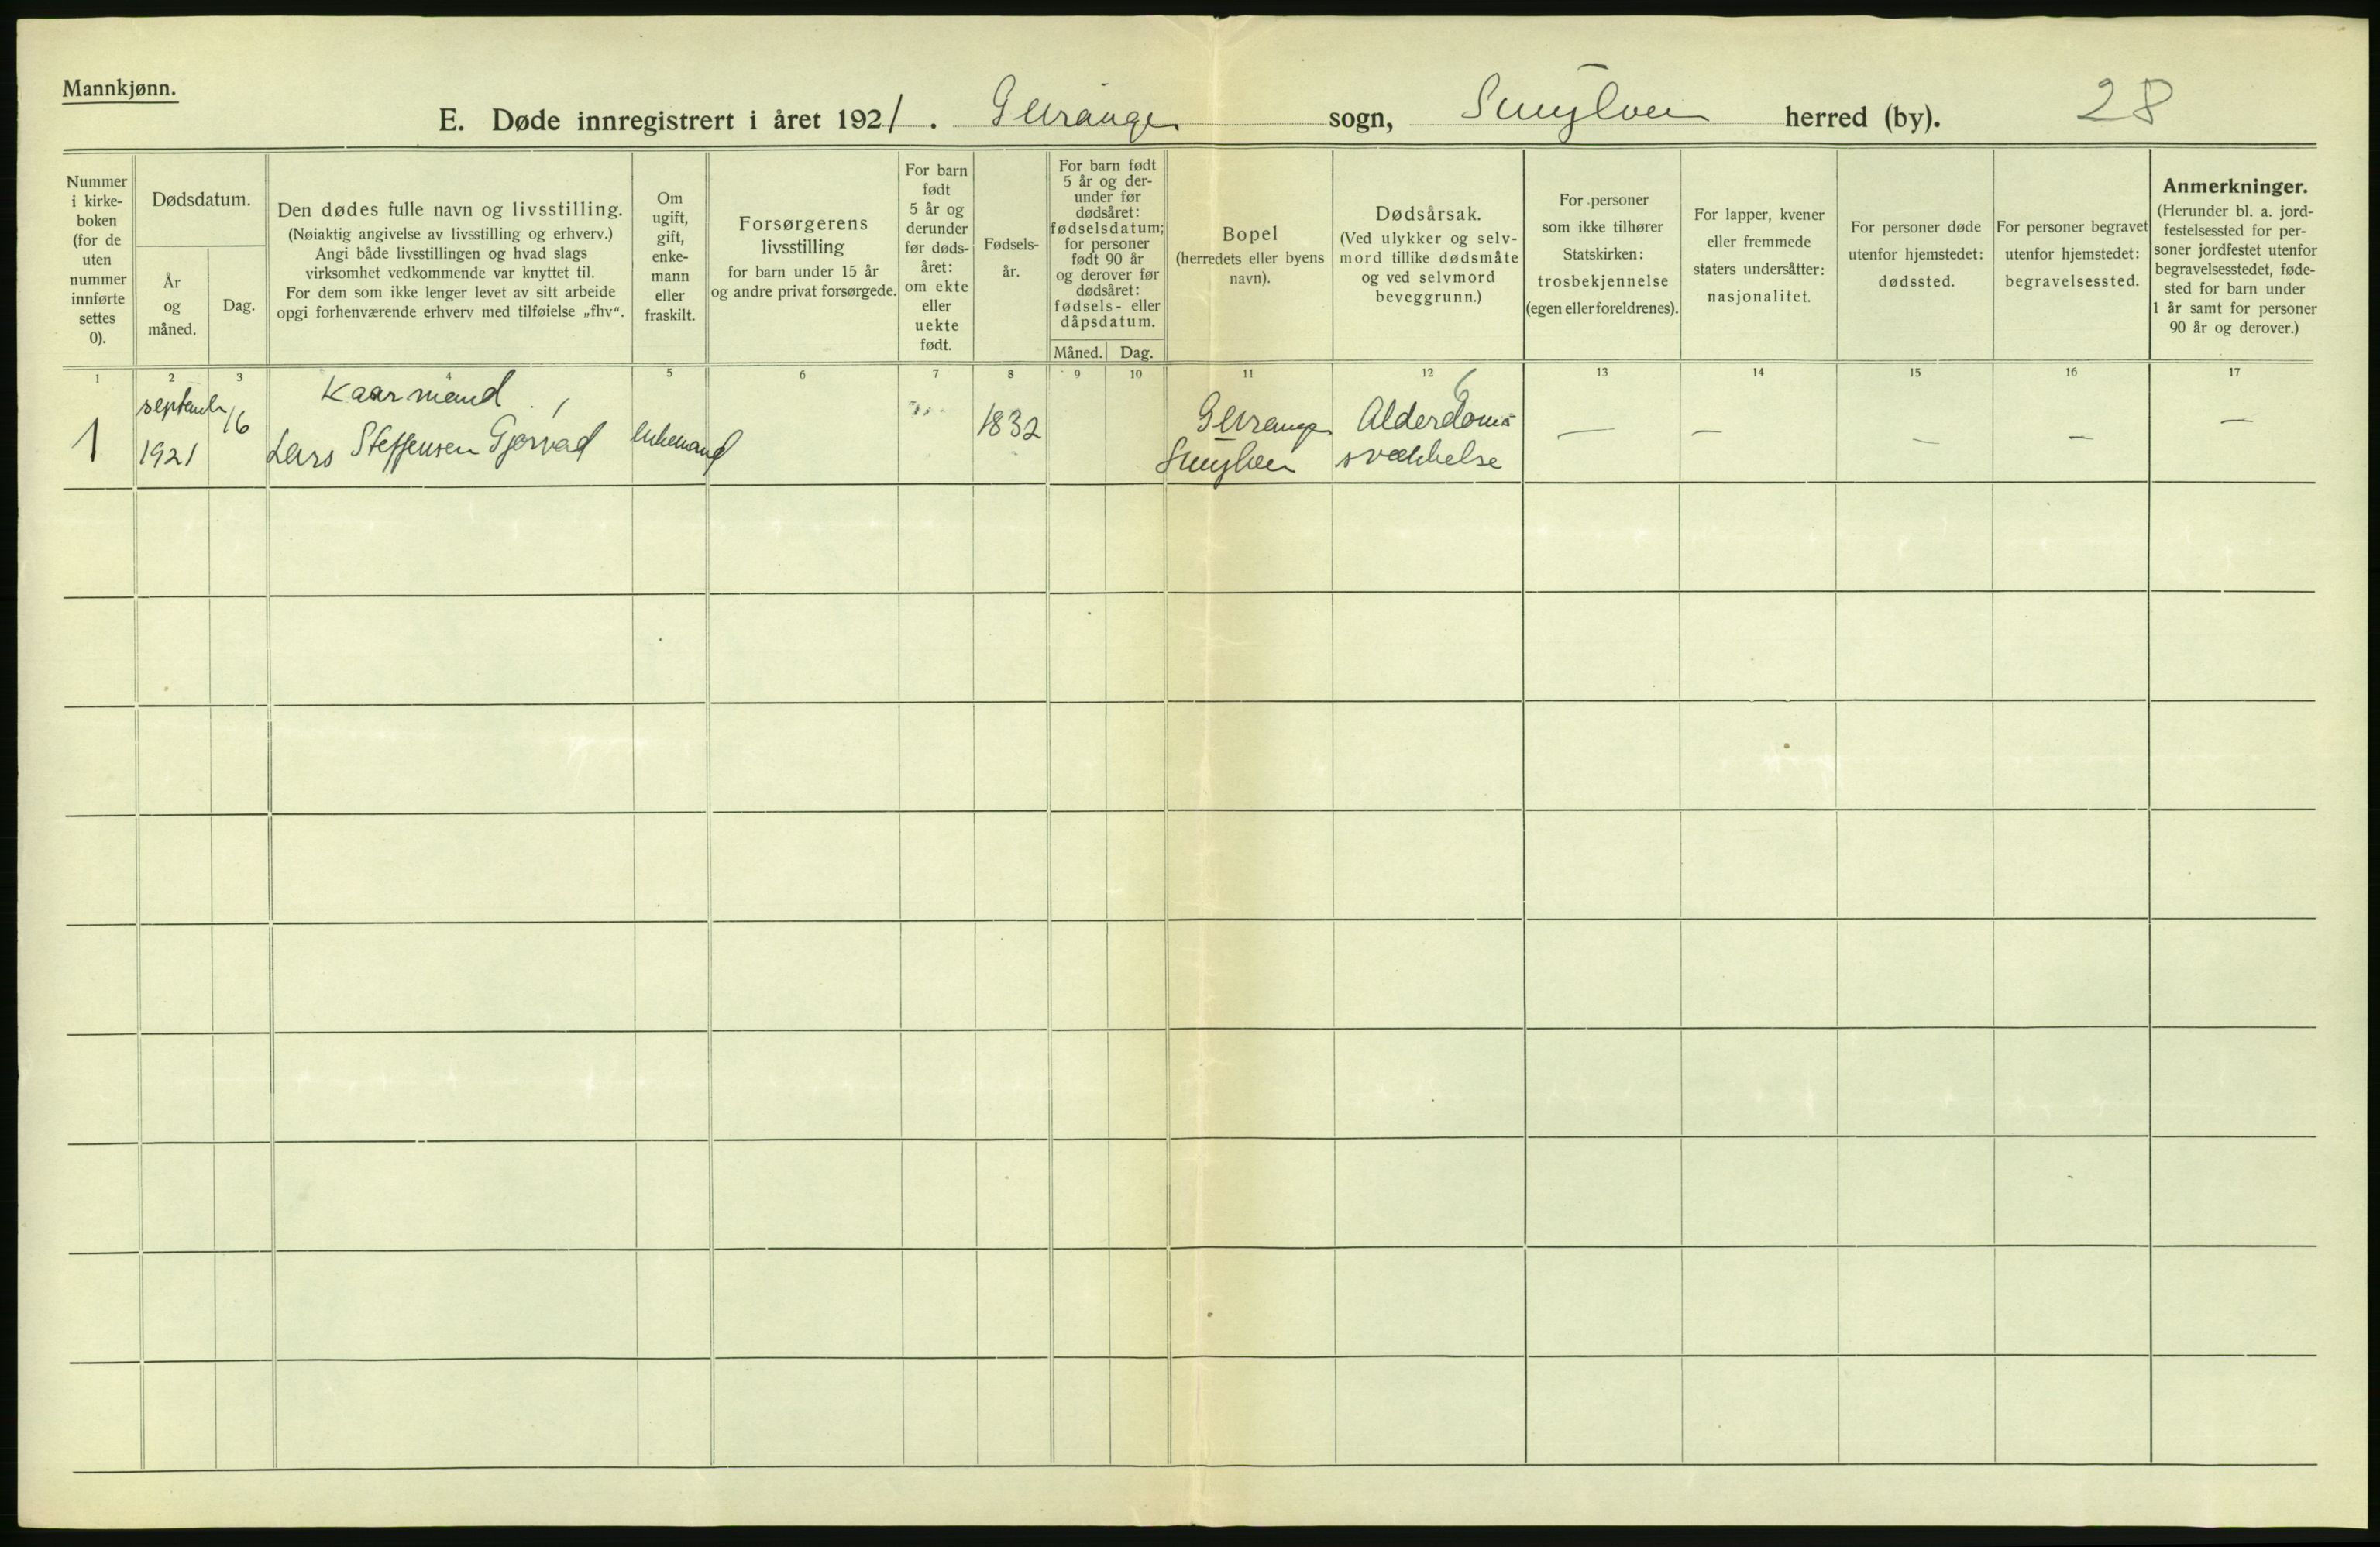 Mannkjønn.
E. Døde innregistrert i året 1921. Geiranger sogn, Sunylven herred (by). 28
Nummer
i kirke-
boken
(for de
uten
nummer
innførte
settes
0).
Dødsdatum.
År
og
måned.
Dag.
Den dødes fulle navn og livsstilling.
(Nøiaktig angivelse av livsstilling og erhverv.)
Angi både livsstillingen og hvad slags
virksomhet vedkommende var knyttet til.
For dem som ikke lenger levet av sitt arbeide
opgi forhenværende erhverv med tilføielse „fhv“.
Om
ugift,
gift,
enke-
mann
eller
fraskilt.
Forsørgerens
livsstilling
for barn under 15 år
og andre privat forsørgede.
For barn
født
5 år og
derunder
før døds-
året:
om ekte
eller
uekte
født.
Fødsels-
år.
For barn født
5 år og der-
under før
dødsåret:
fødselsdatum;
for personer
født 90 år
og derover før
dødsåret:
fødsels- eller
dåpsdatum.
Måned. Dag.
Bopel
(herredets eller byens
navn).
Dødsårsak.
(Ved ulykker og selv-
mord tillike dødsmåte
og ved selvmord
beveggrunn.)
For personer
som ikke tilhører
Statskirken:
trosbekjennelse
(egen eller foreldrenes).
For lapper, kvener
eller fremmede
staters undersåtter:
nasjonalitet.
For personer døde
utenfor hjemstedet:
dødssted.
For personer begravet
utenfor hjemstedet:
begravelsessted.
Anmerkninger.
(Herunder bl. a. jord-
festelsessted for per-
soner jordfestet utenfor
begravelsesstedet, føde-
sted for barn under
1 år samt for personer
90 år og derover.)
1 2 3 4 5 6 7 8 9 10 11 12 13 14 15 16 17
1
septemb
1921
16
Kaarmand
Lars Steffensen Gjørvad
Enkemand
1832
Geiranger
Sunylven
6
Alderdoms
svækkelse
— — — — —